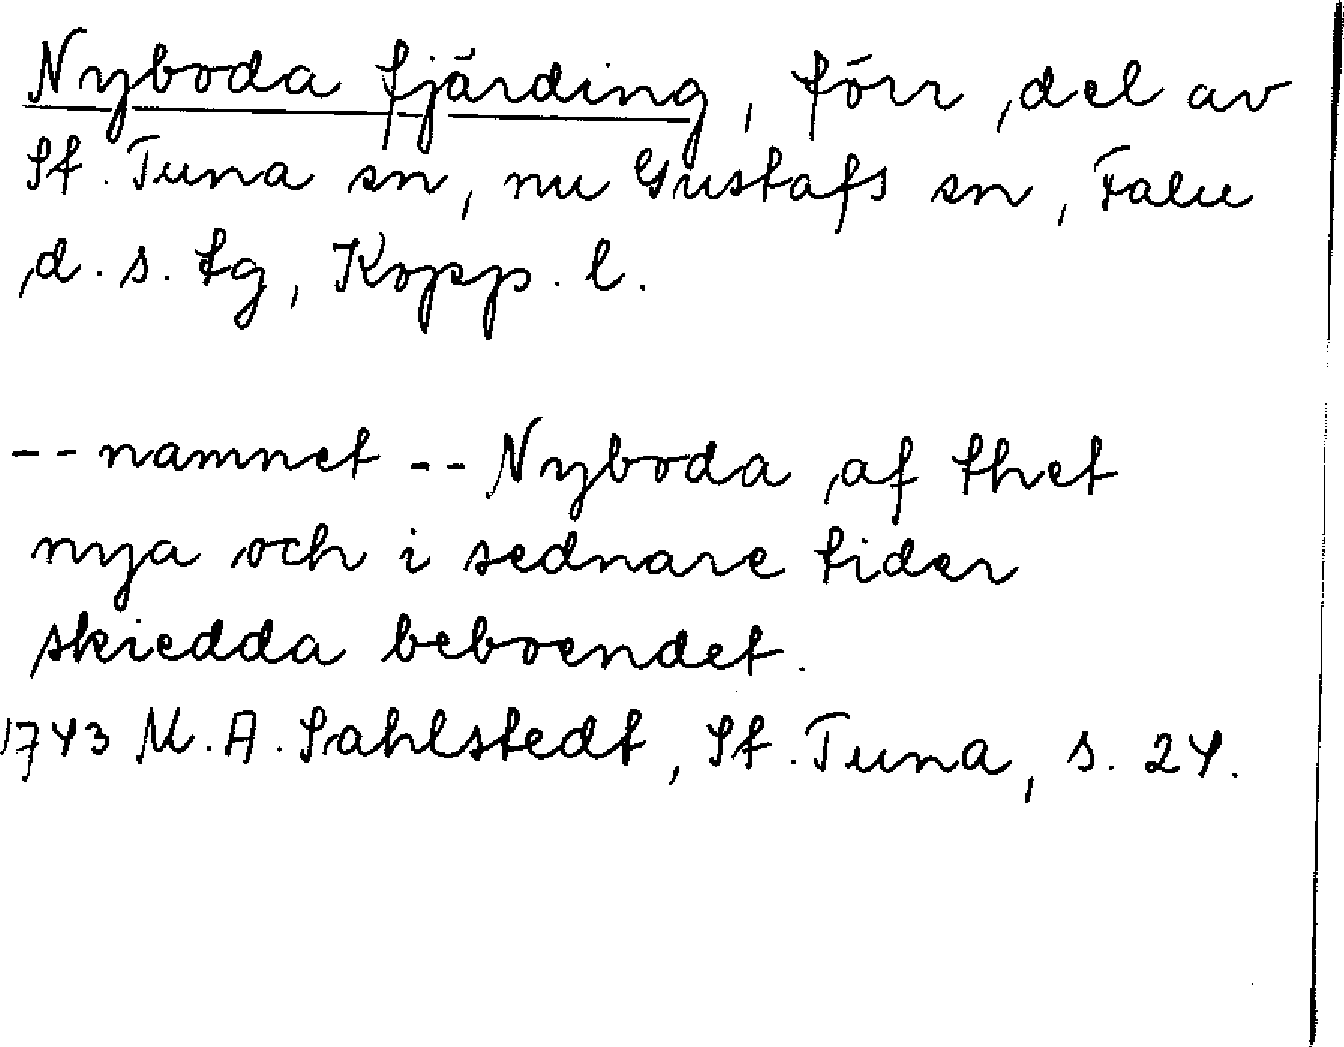 Nyboda fjärding, förr del av
St. Tuna sn, nu Gustafs sn, Falu
d. s. tg, Kopp. l.
-- namnet -- Nyboda af thet
nya och i sednare tider
skiedda beboendet.
1743 M. A. Sahlstedt, St. Tuna, s. 24.